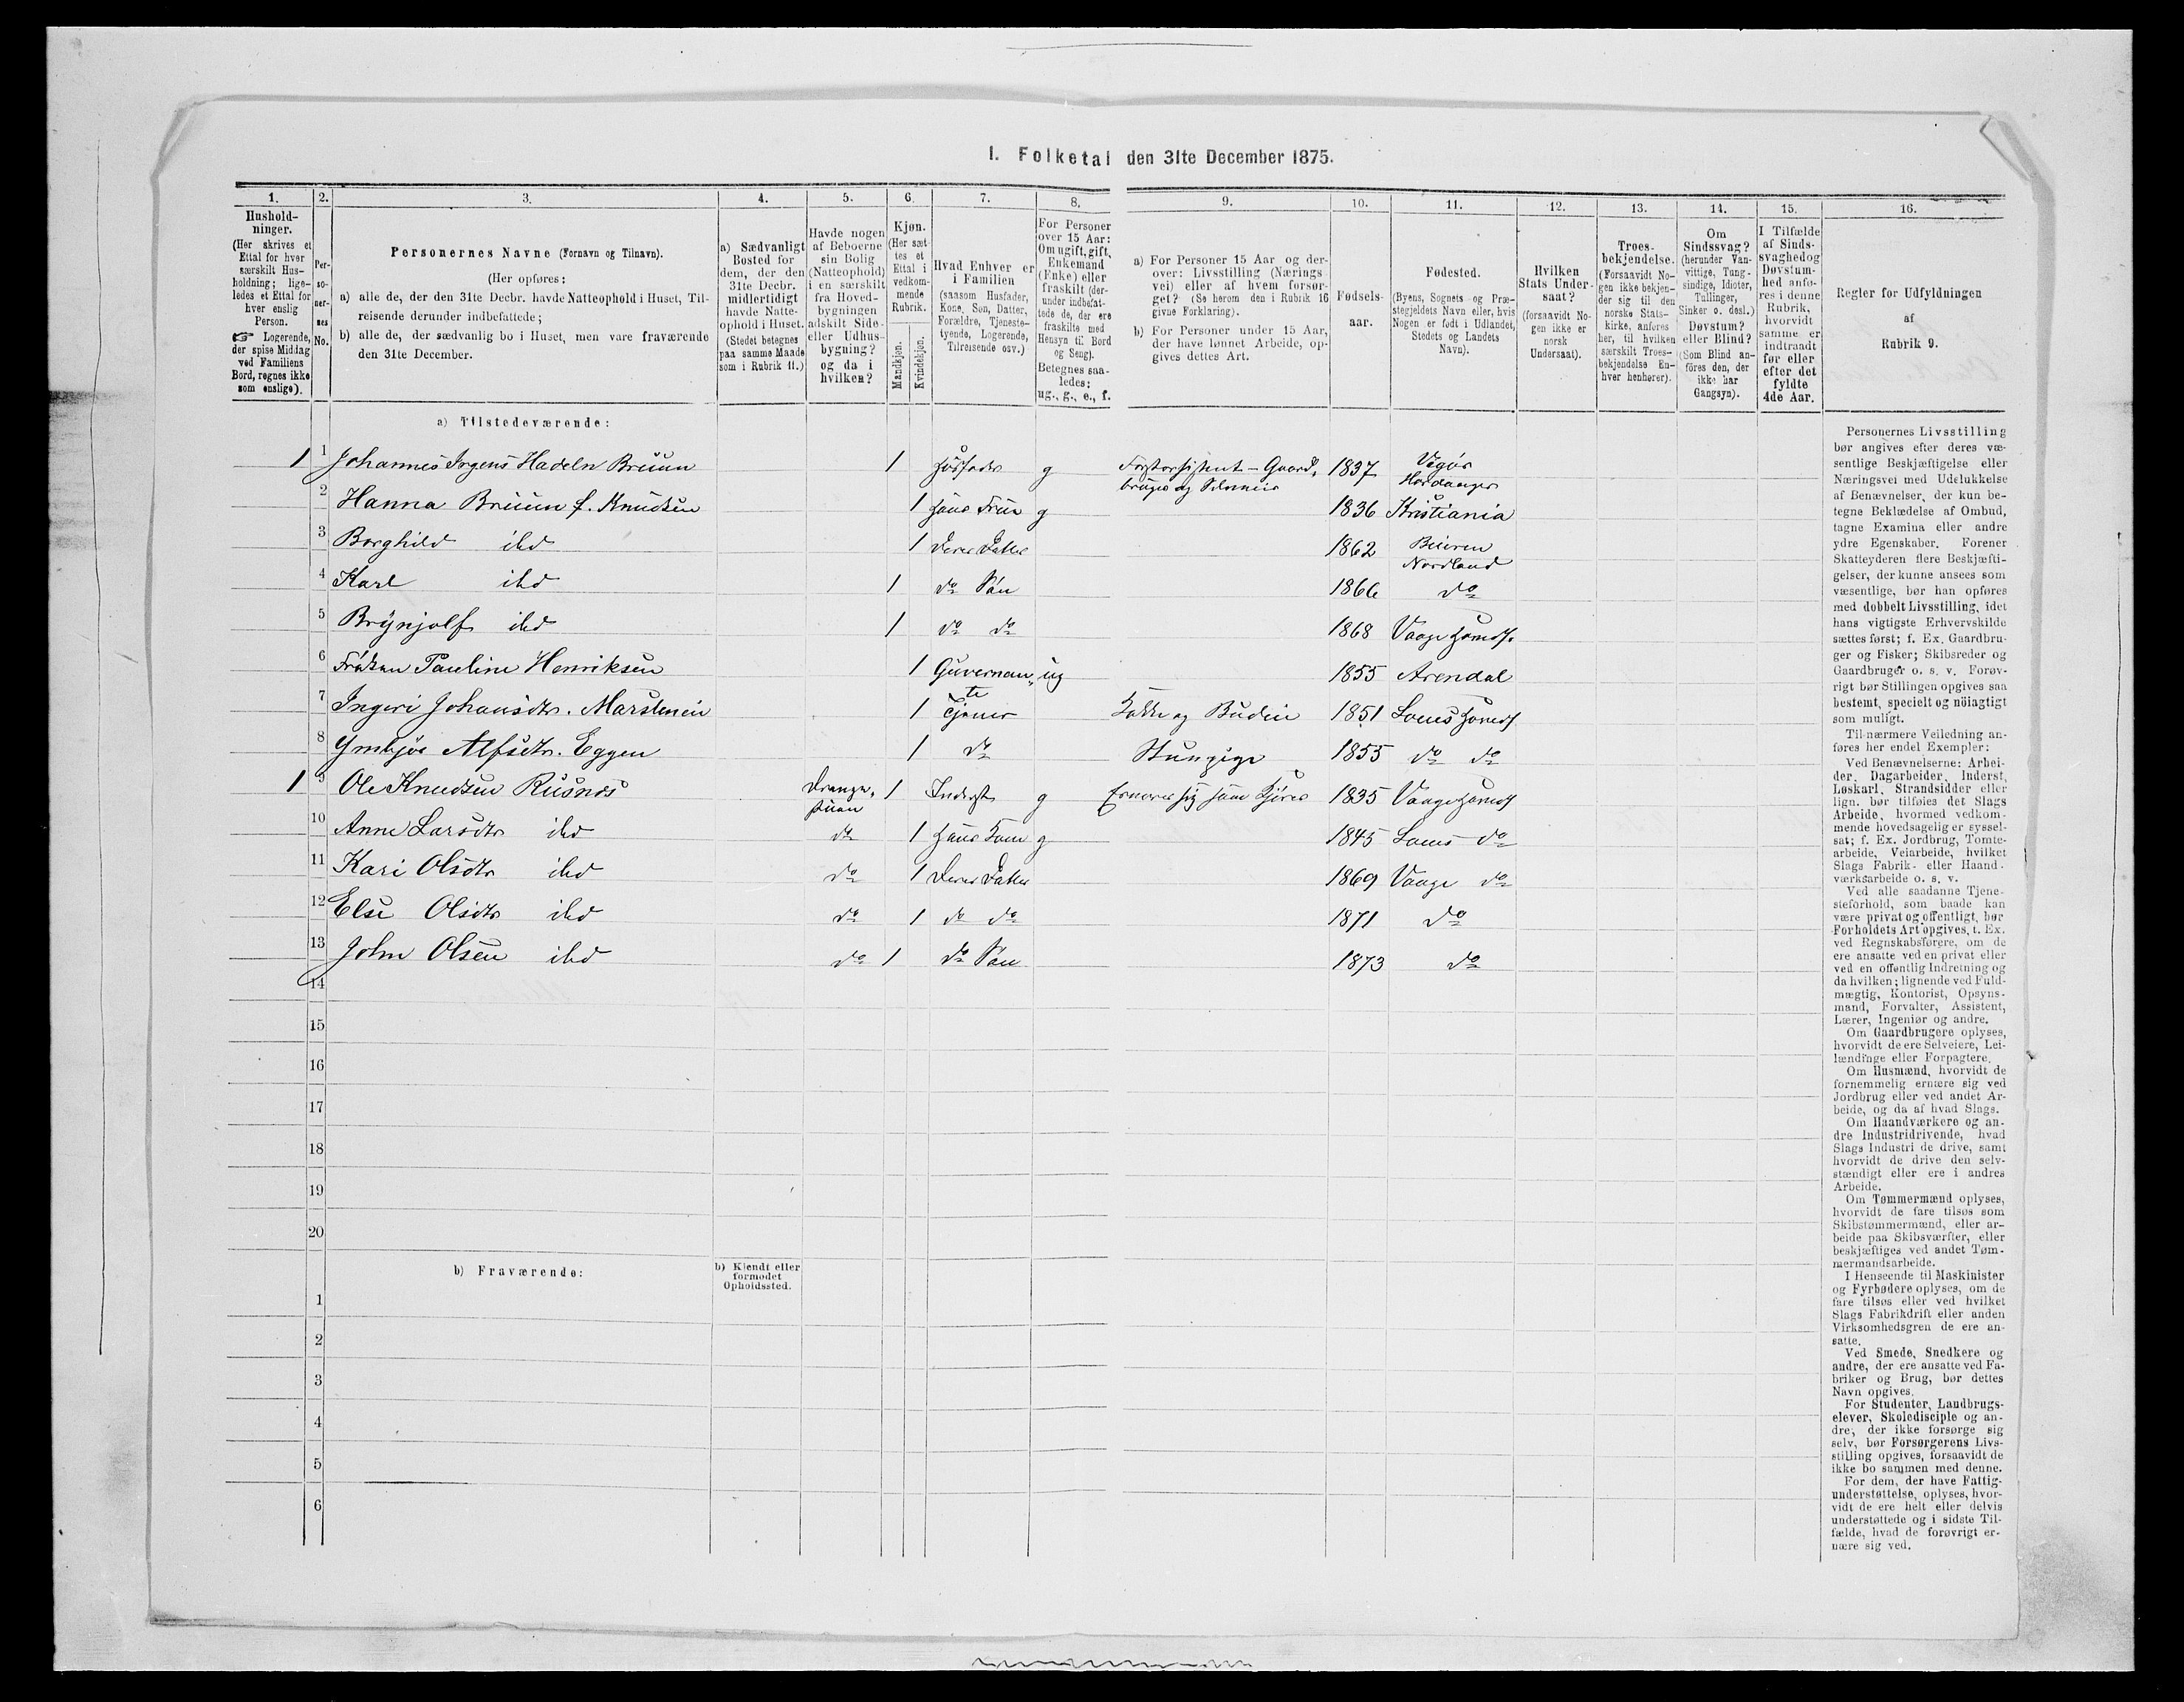 I. Folketal den 31te December 1875.
1. 2. 3. 4. 5. 6. 7. 8. 9. 10. 11. 12. 13. 14. 15. 16.
Hushold-
ninger.
(Her skrives et
Ettal for hver
særskilt Hus-
holdning; lige-
ledes et Ettal for
hver enslig
Person.
☞ Logerende,
der spise Middag
ved Familiens
Bord, regnes ikke
som enslige).
Per-
so-
ner-
nes
No.
Personernes Navne (Fornavn og Tilnavn).
(Her opføres:
a) alle de, der den 31te Decbr. havde Natteophold i Huset, Til-
reisende derunder indbefattede;
b) alle de, der sædvanlig bo i Huset, men vare fraværende
den 31te December.
a) Sædvanligt
Bosted for
dem, der den
31te Decbr.
midlertidigt
havde Natte-
ophold i Huset.
(Stedet betegnes
paa samme Maade
som i Rubrik 11.)
Havde nogen
af Beboerne
sin Bolig
(Natteophold)
i en særskilt
fra Hoved-
bygningen
adskilt Side-
eller Udhus-
bygning?
og da i
hvilken?
Kjøn.
(Her sæt-
tes et
Ettal i
vedkom-
mende
Rubrik.
Mandkjøn.
Kvindekjøn.
Hvad Enhver er
i Familien
(saasom Husfader,
Kone, Søn, Datter,
Forældre, Tjeneste-
tyende, Logerende,
Tilreisende osv.)
For Personer
over 15 Aar:
Om ugift, gift,
Enkemand
(Enke) eller
fraskilt (der-
under indbefat-
tede de, der ere
fraskilte med
Hensyn til Bord
og Seng).
Betegnes saa-
ledes:
ug., g., e., f.
a) For Personer 15 Aar og der-
over: Livsstilling (Nærings-
vei) eller af hvem forsør-
get? (Se herom den i Rubrik 16
givne Forklaring).
b) For Personer under 15 Aar,
der have lønnet Arbeide, op-
gives dettes Art.
Fødsels-
aar.
Fødested.
(Byens, Sognets og Præ-
stegjeldets Navn eller, hvis
Nogen er født i Udlandet,
Stedets og Landets
Navn).
Hvilken
Stats Under-
saat?
(forsaavidt No-
gen ikke er
norsk
Undersaat).
Troes-
bekjendelse.
(Forsaavidt No-
gen ikke bekjen-
der sig til den
norske Stats-
kirke, anføres
her, til hvilken
særskilt Troes-
bekjendelse En-
hver henhører).
Om
Sindssvag?
(herunder Van-
vittige, Tung-
sindige, Idioter,
Tullinger,
Sinker o. desl.)
Døvstum?
eller Blind?
(Som Blind an-
föres den, der
ikke har
Gangsyn).
I Tilfælde
af Sinds-
svaghed og
Døvstum-
hed anfø-
res i denne
Rubrik,
hvorvidt
samme er
indtraadt
før eller
efter det
fyldte
4de Aar.
Regler for Udfyldningen
af
Rubrik 9.
a) Tilstedeværende:
1 1 Johannes Irgens Hadeln Bruun 1 Husfader g Forstassistent - Gaard- 1837 Vigør
bruger og Selveier Hardanger
2 Hanna Bruun f. Knudsen 1 hans Frue g 1836 Kristiania
3 Borghild ibd 1 deres Datter 1862 Beieren
Nordland
4 Karl ibd 1 do Søn 1866 do
5 Brynjolf ibd 1 do do 1868 Vaage
6 Frøken Pauline Henriksen 1 Guvernan- ug 1855 Arendal
te
7 Ingeri Johansdtr. Marstenein 1 Tjener Kokke og Budeie 1851 Loms
8 Ymbjør Alfsdtr. Eggen 1 do Stuepige 1855 do do
1 9 Ole Knudsen Rusnes Drenge- 1 Inderst g Ernærer sig som Kjører 1835 Vaage
stuen
10 Anne Larsdtr ibd do 1 hans Kone g 1845 Loms do
11 Kari Olsdtr ibd do 1 deres Datter 1869 Vaage do
12 Else Olsdtr ibd do 1 do do 1871 do
13 John Olsen ibd do 1 do Søn 1873 do
14
15
16
17
18
19
20
b) Fraværende:
b) Kjendt eller
formodet
Opholdssted.
1
2
3
4
5
6
Personernes Livsstilling
bør angives efter deres væ-
sentlige Beskjæftigelse eller
Næringsvei med Udelukkelse
af Benævnelser, der kun be-
tegne Beklædelse af Ombud,
tagne Examina eller andre
ydre Egenskaber. Forener
Skatteyderen flere Beskjæfti-
gelser, der kunne ansees som
væsentlige, bør han opføres
med dobbelt Livsstilling, idet
hans vigtigste Erhvervskilde
sættes først; f. Ex. Gaardbru-
ger og Fisker; Skibsreder og
Gaardbruger o. s. v. Forøv-
rigt bør Stillingen opgives saa
bestemt, specielt og nöiagtigt
som muligt.
Til nærmere Veiledning an-
føres her endel Exempler:
Ved Benævnelserne: Arbei-
der, Dagarbeider, Inderst,
Løskarl, Strandsidder eller
lign. bør tilføies det Slags
Arbeide, hvormed vedkom-
mende hovedsagelig er syssel-
sat; f. Ex. Jordbrug, Tomte-
arbeide, Veiarbeide, hvilket
Slags Fabrik- eller Haand-
værksarbeide o. s. v.
Ved alle saadanne Tjene-
steforhold, som baade kan
være privat og offentligt, bør
Forholdets Art opgives, t. Ex.
ved Regnskabsførere, om de
ere ansatte ved en privat eller
ved en offentlig Indretning og
da hvilken; lignende ved Fuld-
mægtig, Kontorist, Opsyns-
mand, Forvalter, Assistent,
Lærer, Ingeniør og andre.
Om Gaardbrugere oplyses,
hvorvidt de ere Selveiere, Lei-
lændinge eller Forpagtere.
Om Husmænd, hvorvidt de
fornemmelig ernære sig ved
Jordbrug eller ved andet Ar-
beide, og da af hvad Slags.
Om Haandværkere og an-
dre Industridrivende, hvad
Slags Industri de drive, samt
hvorvidt de drive den selv-
stændigt eller ere i andres
Arbeide.
Om Tømmermænd oplyses,
hvorvidt de fare tilsøs som
Skibstømmermænd, eller ar-
beide paa Skibsværfter, eller
beskjæftiges ved andet Tøm-
mermandsarbeide.
I Henseende til Maskinister
og Fyrbødere oplyses, om de
fare tilsøs eller ved hvilket
Slags Fabrikdrift eller anden
Virksomhedsgren de ere an-
satte.
Ved Smede, Snedkere og
andre, der ere ansatte ved Fa-
briker og Brug, bør dettes
Navn opgives.
For Studenter, Landbrugs-
elever, Skoledisciple og an-
dre, der ikke forsørge sig
selv, bør Forsørgerens Livs-
stilling opgives, forsaavidt de
ikke bo sammen med denne.
For dem, der have Fattig-
understøttelse, oplyses, hvor-
vidt de ere helt eller delvis
understøttede og i sidste Til-
fælde, hvad de forøvrigt er-
nære sig ved.